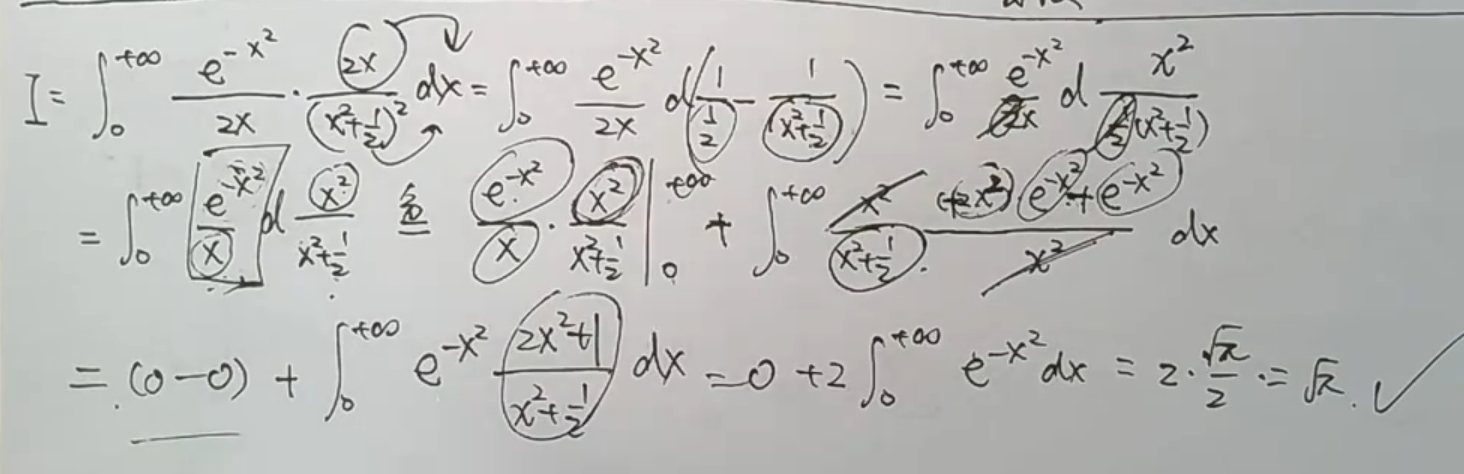 I = ∫₀^{+∞} \frac{e^{-x²}}{2x} · \frac{2x}{(x²+\frac{1}{2})²} dx = ∫₀^{+∞} \frac{e^{-x²}}{2x} d(\frac{1}{\frac{1}{2}} - \frac{1}{x²+\frac{1}{2}}) = ∫₀^{+∞} \frac{e^{-x²}}{2x} d \frac{x²}{\frac{1}{2}(x²+\frac{1}{2})}
= ∫₀^{+∞} \frac{e^{-x²}}{x} d \frac{x²}{x²+\frac{1}{2}} = \frac{e^{-x²}}{x} · \frac{x²}{x²+\frac{1}{2}} |₀^{+∞} + ∫₀^{+∞} \frac{x²}{x²+\frac{1}{2}} · \frac{(+2x²)·e^{-x²} + e^{-x²}}{x²} dx
= (0-0) + ∫₀^{+∞} e^{-x²} \frac{2x²+1}{x²+\frac{1}{2}} dx = 0 + 2 ∫₀^{+∞} e^{-x²} dx = 2 · \frac{√π}{2} · = √π. ✓